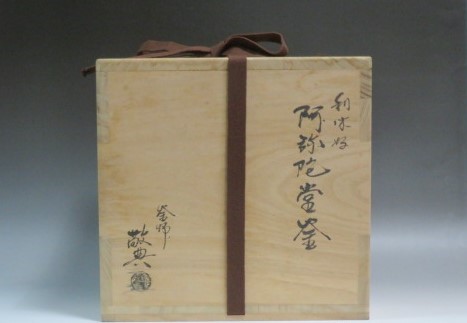 利休好
阿弥陀堂釜
釜師
敬典